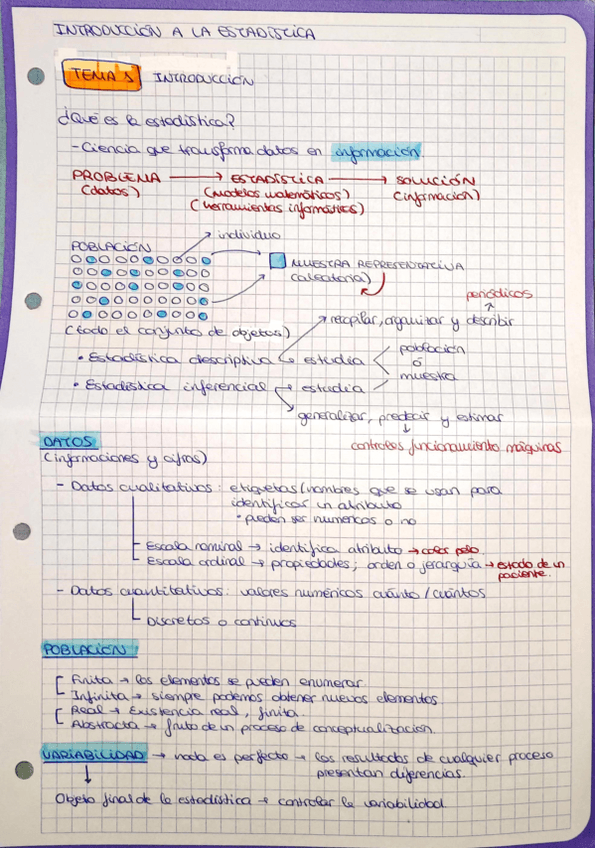 INTRODUCCIÓN A LA ESTADÍSTICA
TEMA 1 INTRODUCCIÓN
¿Qué es la estadística?
- Ciencia que transforma datos en información.
PROBLEMA → ESTADÍSTICA → SOLUCIÓN
(datos) (modelos matemáticos) (información)
(herramientas informáticas)
individuo
POBLACIÓN
MUESTRA REPRESENTATIVA
(aleatoria)
periódicos
(todo el conjunto de objetos)
recopilar, organizar y describir
• Estadística descriptiva → estudia
población
ó
muestra
• Estadística inferencial → estudia
generalizar, predecir y estimar
controles funcionamiento máquinas
DATOS
(informaciones y cifras)
- Datos cualitativos: etiquetas/nombres que se usan para
identificar un atributo
• pueden ser numéricos o no
Escala nominal → identifica atributo → color pelo.
Escala ordinal → propiedades; orden o jerarquía → estado de un
paciente.
- Datos cuantitativos: valores numéricos cuánto/cuántos
Discretos o continuos
POBLACIÓN:
Finita → los elementos se pueden enumerar.
Infinita → siempre podemos obtener nuevos elementos
Real → Existencia real, finita.
Abstracta → fruto de un proceso de conceptualización.
VARIABILIDAD → nada es perfecto → los resultados de cualquier proceso
presentan diferencias.
Objeto final de la estadística → controlar la variabilidad